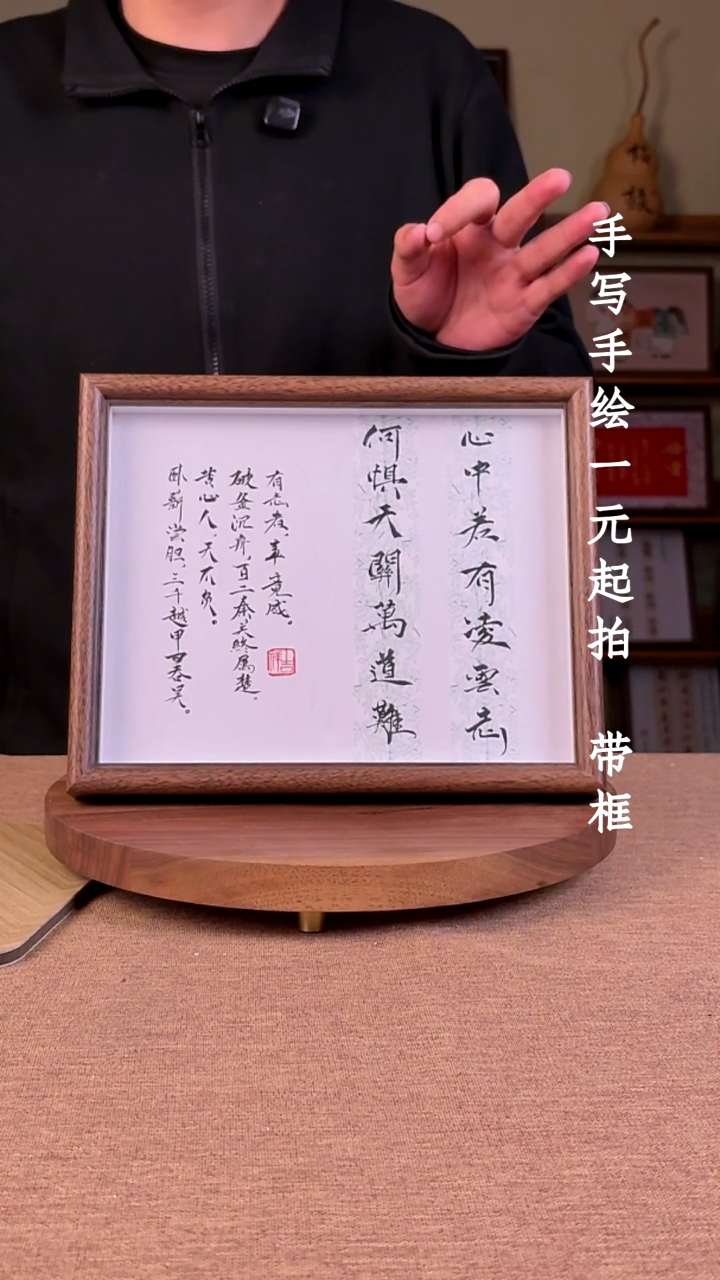 手写手绘一元起拍 带框
心中若有凌雲志
何惧天關萬道難
有志者，事竟成。
破釜沉舟，百二秦关終属楚。
苦心人，天不负。
卧薪尝胆，三千越甲可吞吴。